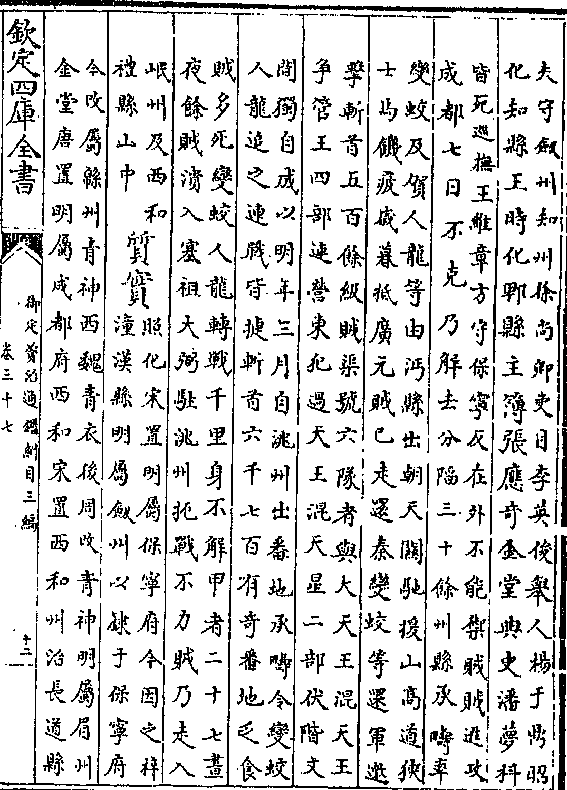 夫守劔州知州徐尚卿吏目李英俊舉人楊于鼎昭
化知縣王時化郫縣主簿張應奇金堂典史潘夢科
皆死巡撫王維章方守保寧反在外不能禦賊賊進攻
成都七日不克乃解去分陷三十餘州縣承疇率
變蛟及賀人龍等由沔縣出朝天關馳援山高道狹
士馬饑疲歲暮抵廣元賊已走還秦變蛟等還軍邀
擊斬首五百餘級賊渠號六隊者與大天王混天王
争管王四部連營東犯過天王混天星二部伏階文
間獨自成以明年三月自洮州出番地承疇令變蛟
人龍追之連戰皆捷斬首六千七百有奇番地乏食
賊多死變蛟人龍轉戰千里身不解甲者二十七晝
夜餘賊潰入塞祖大弼駐洮州扼戰不力賊乃走入
岷州及西和
禮縣山中
質實
照化宋置明屬保寧府今因之梓
潼漢縣明屬劔州以隸于保寧府
今改屬緜州青神西魏青衣後周改青神明屬眉州
金堂唐置明屬成都府西和宋置西和州治長道縣
欽定四庫全書
御定資治通鑑綱目三編
卷三十七
十二